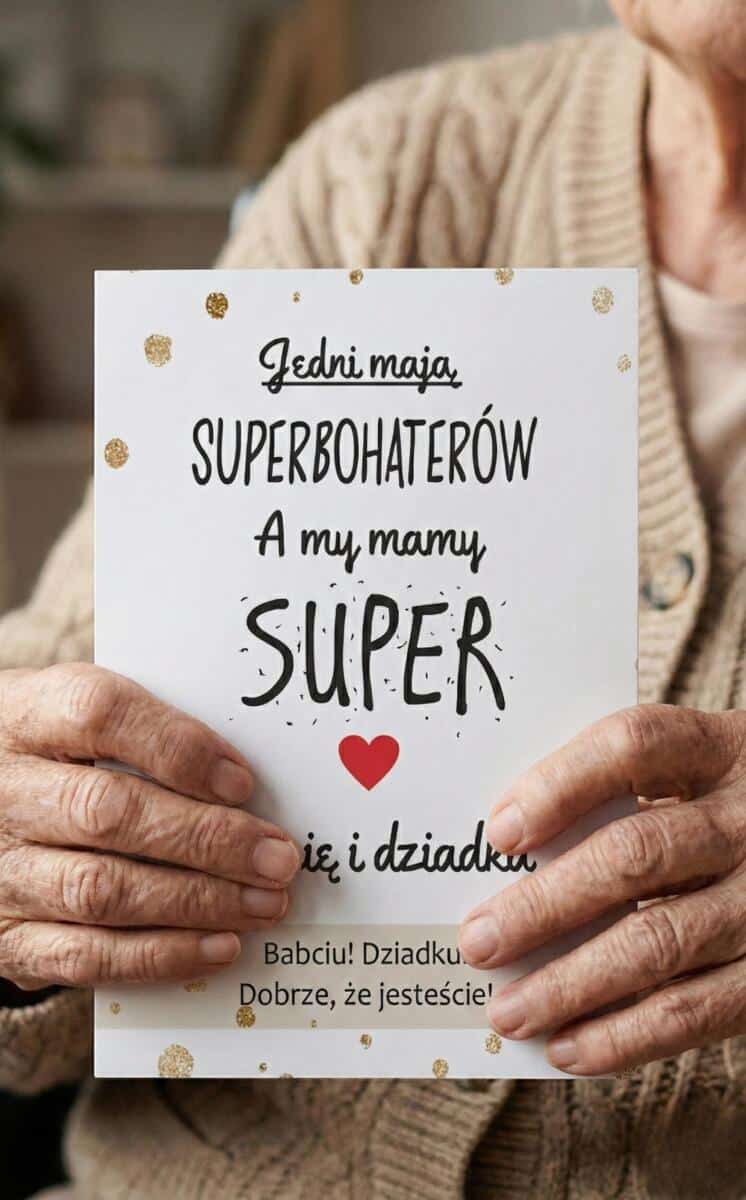 Jedni mają
SUPERBOHATERÓW
A my mamy
SUPER
i dziadka
Babciu! Dziadku!
Dobrze, że jesteście!